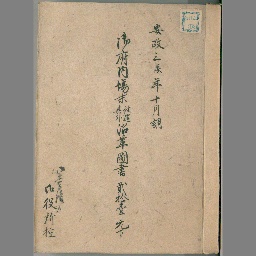 安政三辰年十月調
御府内場末往還其外沿革圖書 貳拾壹 元下
御役所控